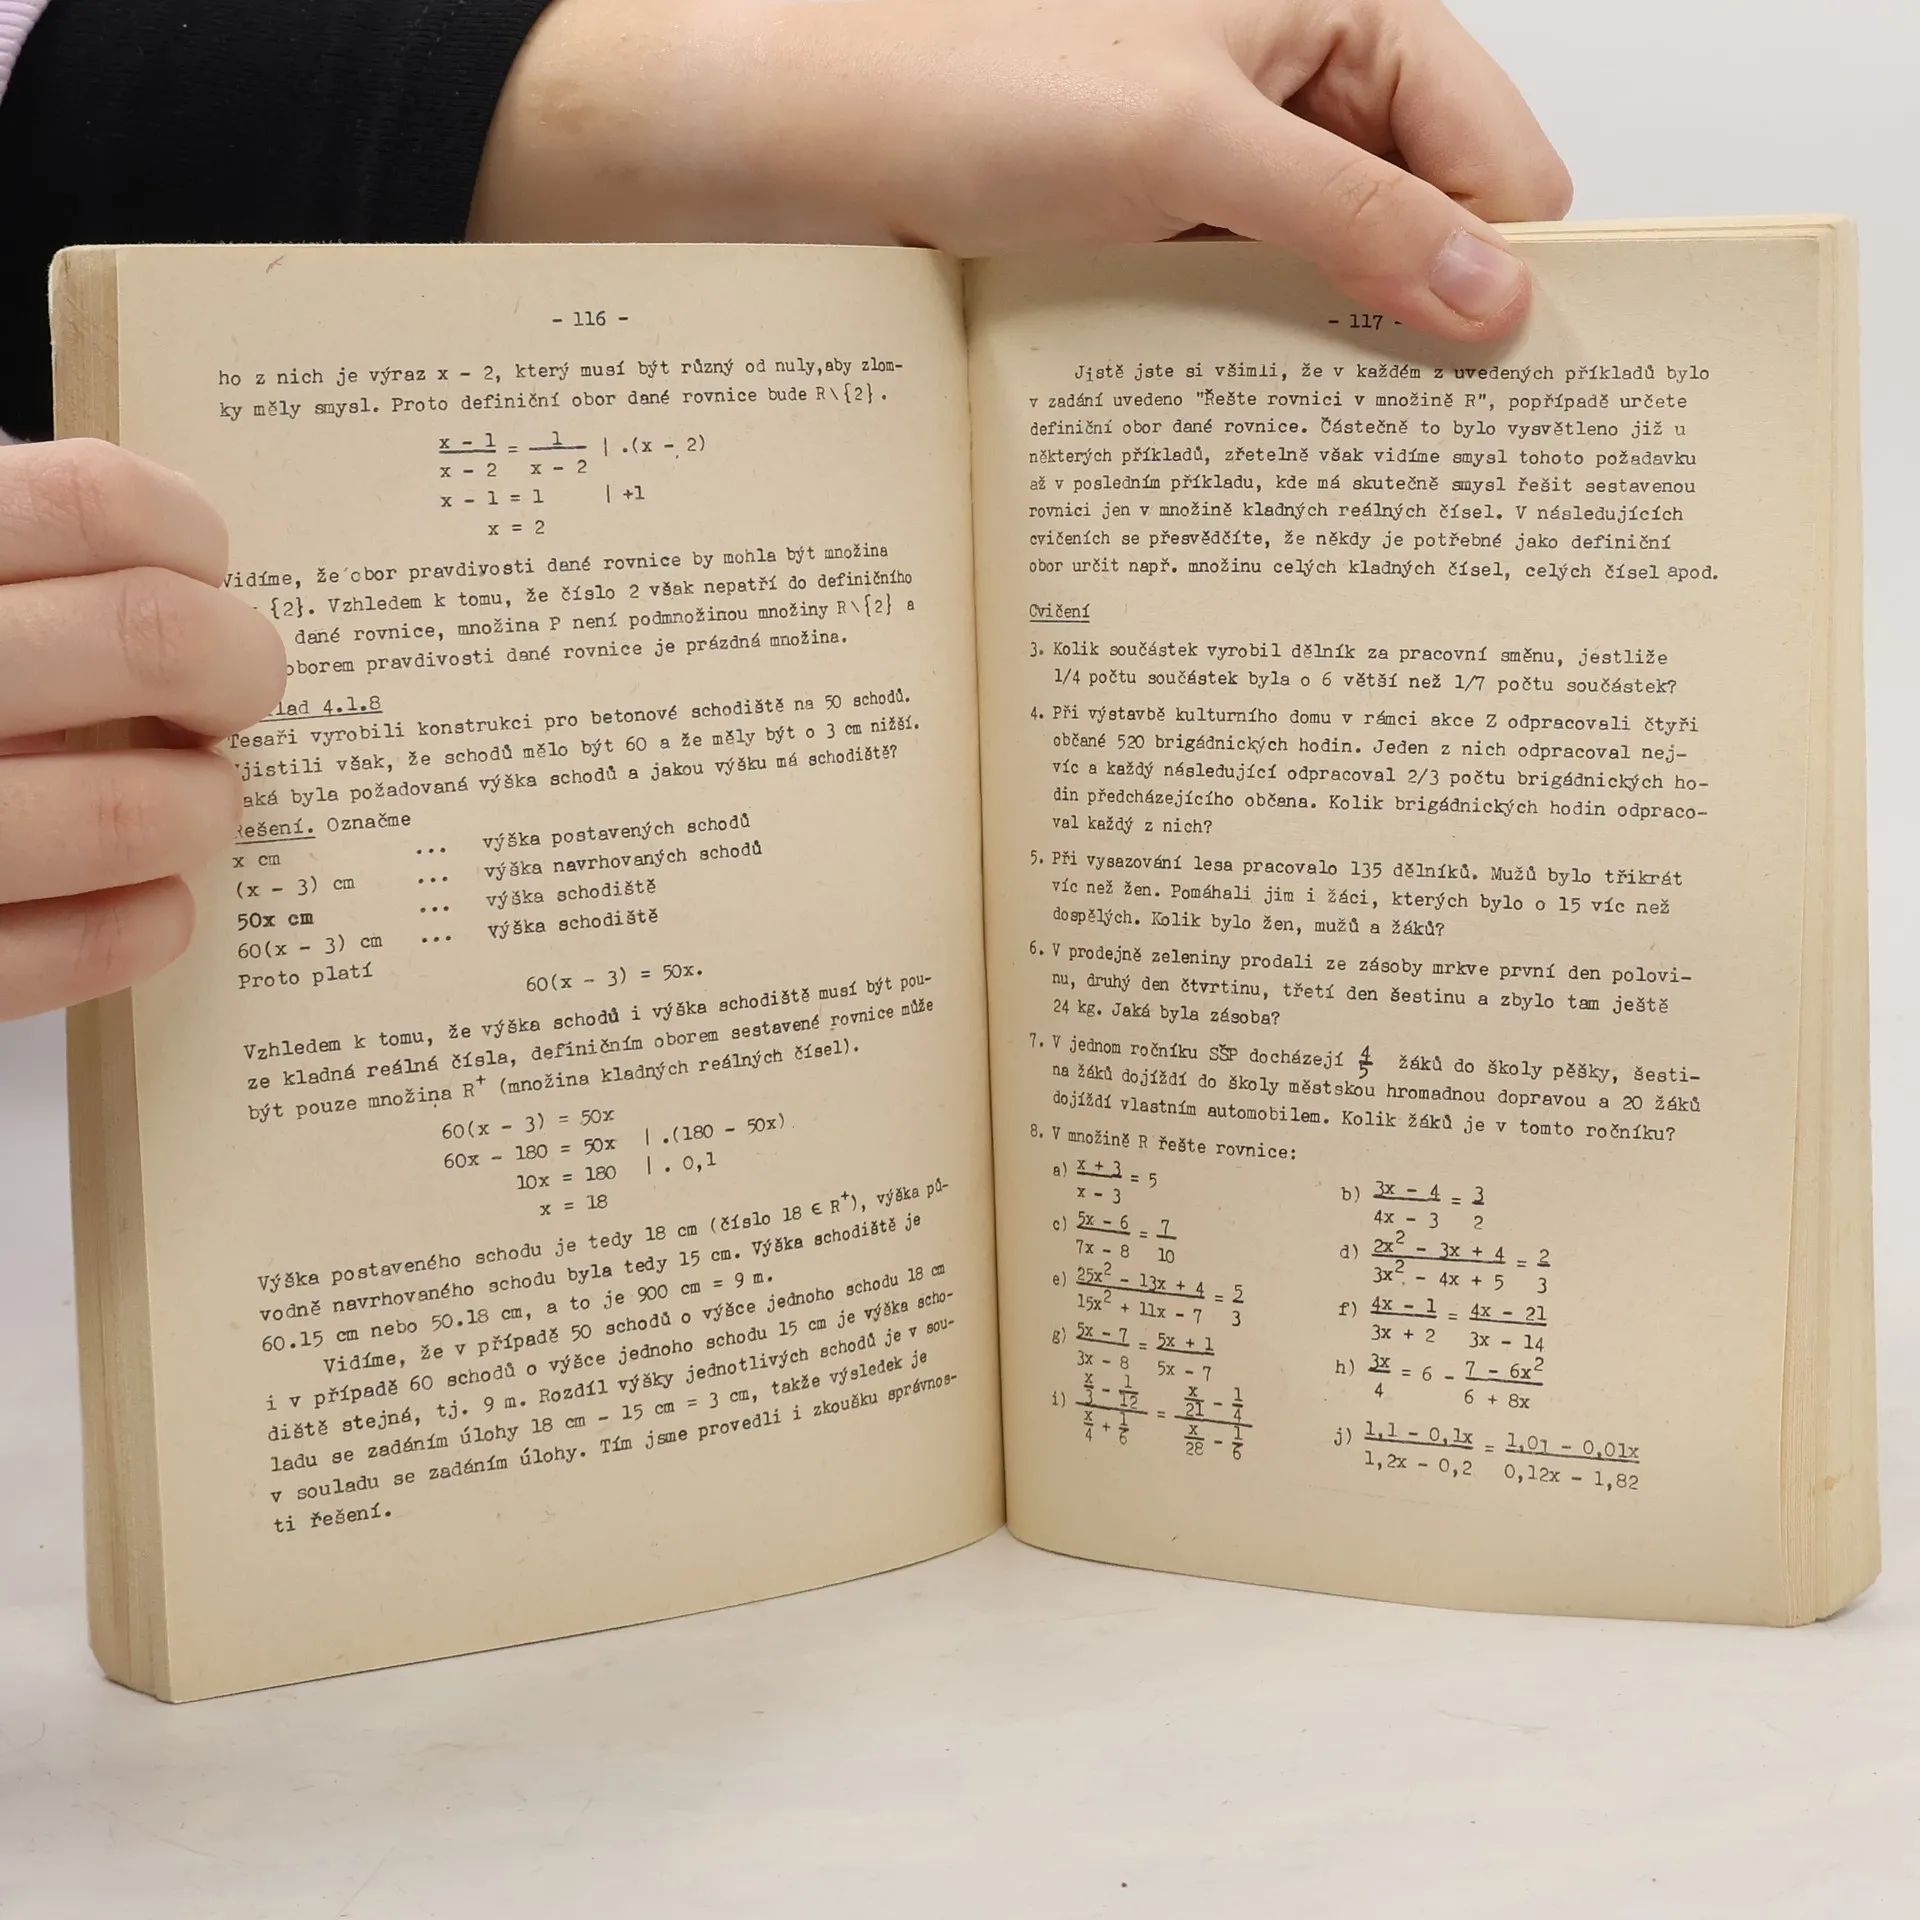 - 116 -
ho z nich je výraz x - 2, který musí být různý od nuly,aby zlom-
ky měly smysl. Proto definiční obor dané rovnice bude R\{2}.
x - 1 = 1 | .(x - 2)
x - 2 x - 2
x - 1 = 1 | +1
x = 2
Vidíme, že obor pravdivosti dané rovnice by mohla být množina
{2}. Vzhledem k tomu, že číslo 2 však nepatří do definičního
dané rovnice, množina P není podmnožinou množiny R\{2} a
oborem pravdivosti dané rovnice je prázdná množina.
lad 4.1.8
Tesaři vyrobili konstrukci pro betonové schodiště na 50 schodů.
jistili však, že schodů mělo být 60 a že měly být o 3 cm nižší.
aká byla požadovaná výška schodů a jakou výšku má schodiště?
Řešení. Označme
x cm ... výška postavených schodů
(x - 3) cm ... výška navrhovaných schodů
50x cm ... výška schodiště
60(x - 3) cm ... výška schodiště
Proto platí
60(x - 3) = 50x.
Vzhledem k tomu, že výška schodů i výška schodiště musí být pou-
ze kladná reálná čísla, definičním oborem sestavené rovnice může
být pouze množina R+ (množina kladných reálných čísel).
60(x - 3) = 50x
60x - 180 = 50x | .(180 - 50x)
10x = 180 | . 0,1
x = 18
Výška postaveného schodu je tedy 18 cm (číslo 18 ∈ R+), výška pů-
vodně navrhovaného schodu byla tedy 15 cm. Výška schodiště je
60.15 cm nebo 50.18 cm, a to je 900 cm = 9 m.
Vidíme, že v případě 50 schodů o výšce jednoho schodu 18 cm
i v případě 60 schodů o výšce jednoho schodu 15 cm je výška scho-
diště stejná, tj. 9 m. Rozdíl výšky jednotlivých schodů je v sou-
ladu se zadáním úlohy 18 cm - 15 cm = 3 cm, takže výsledek je
v souladu se zadáním úlohy. Tím jsme provedli i zkoušku správnos-
ti řešení.
- 117 -
Jistě jste si všimli, že v každém z uvedených příkladů bylo
v zadání uvedeno "Řešte rovnici v množině R", popřípadě určete
definiční obor dané rovnice. Částečně to bylo vysvětleno již u
některých příkladů, zřetelně však vidíme smysl tohoto požadavku
až v posledním příkladu, kde má skutečně smysl řešit sestavenou
rovnici jen v množině kladných reálných čísel. V následujících
cvičeních se přesvědčíte, že někdy je potřebné jako definiční
obor určit např. množinu celých kladných čísel, celých čísel apod.
Cvičení
3. Kolik součástek vyrobil dělník za pracovní směnu, jestliže
1/4 počtu součástek byla o 6 větší než 1/7 počtu součástek?
4. Při výstavbě kulturního domu v rámci akce Z odpracovali čtyři
občané 520 brigádnických hodin. Jeden z nich odpracoval nej-
víc a každý následující odpracoval 2/3 počtu brigádnických ho-
din předcházejícího občana. Kolik brigádnických hodin odpraco-
val každý z nich?
5. Při vysazování lesa pracovalo 135 dělníků. Mužů bylo třikrát
víc než žen. Pomáhali jim i žáci, kterých bylo o 15 víc než
dospělých. Kolik bylo žen, mužů a žáků?
6. V prodejně zeleniny prodali ze zásoby mrkve první den polovi-
nu, druhý den čtvrtinu, třetí den šestinu a zbylo tam ještě
24 kg. Jaká byla zásoba?
7. V jednom ročníku SŠP docházejí 4/5 žáků do školy pěšky, šesti-
na žáků dojíždí do školy městskou hromadnou dopravou a 20 žáků
dojíždí vlastním automobilem. Kolik žáků je v tomto ročníku?
8. V množině R řešte rovnice:
a) x + 3 = 5
x - 3
b) 3x - 4 = 3
4x - 3 2
c) 5x - 6 = 7
7x - 8 10
d) 2x² - 3x + 4 = 2
3x² - 4x + 5 3
e) 25x² - 13x + 4 = 5
15x² + 11x - 7 3
f) 4x - 1 = 4x - 21
3x + 2 3x - 14
g) 5x - 7 = 5x + 1
3x - 8 5x - 7
h) 3x = 6 - 7 - 6x²
4 6 + 8x
i) x/3 - 1/12 = x/21 - 1/4
x/4 + 1/6 x/28 - 1/6
j) 1,1 - 0,1x = 1,01 - 0,01x
1,2x - 0,2 0,12x - 1,82